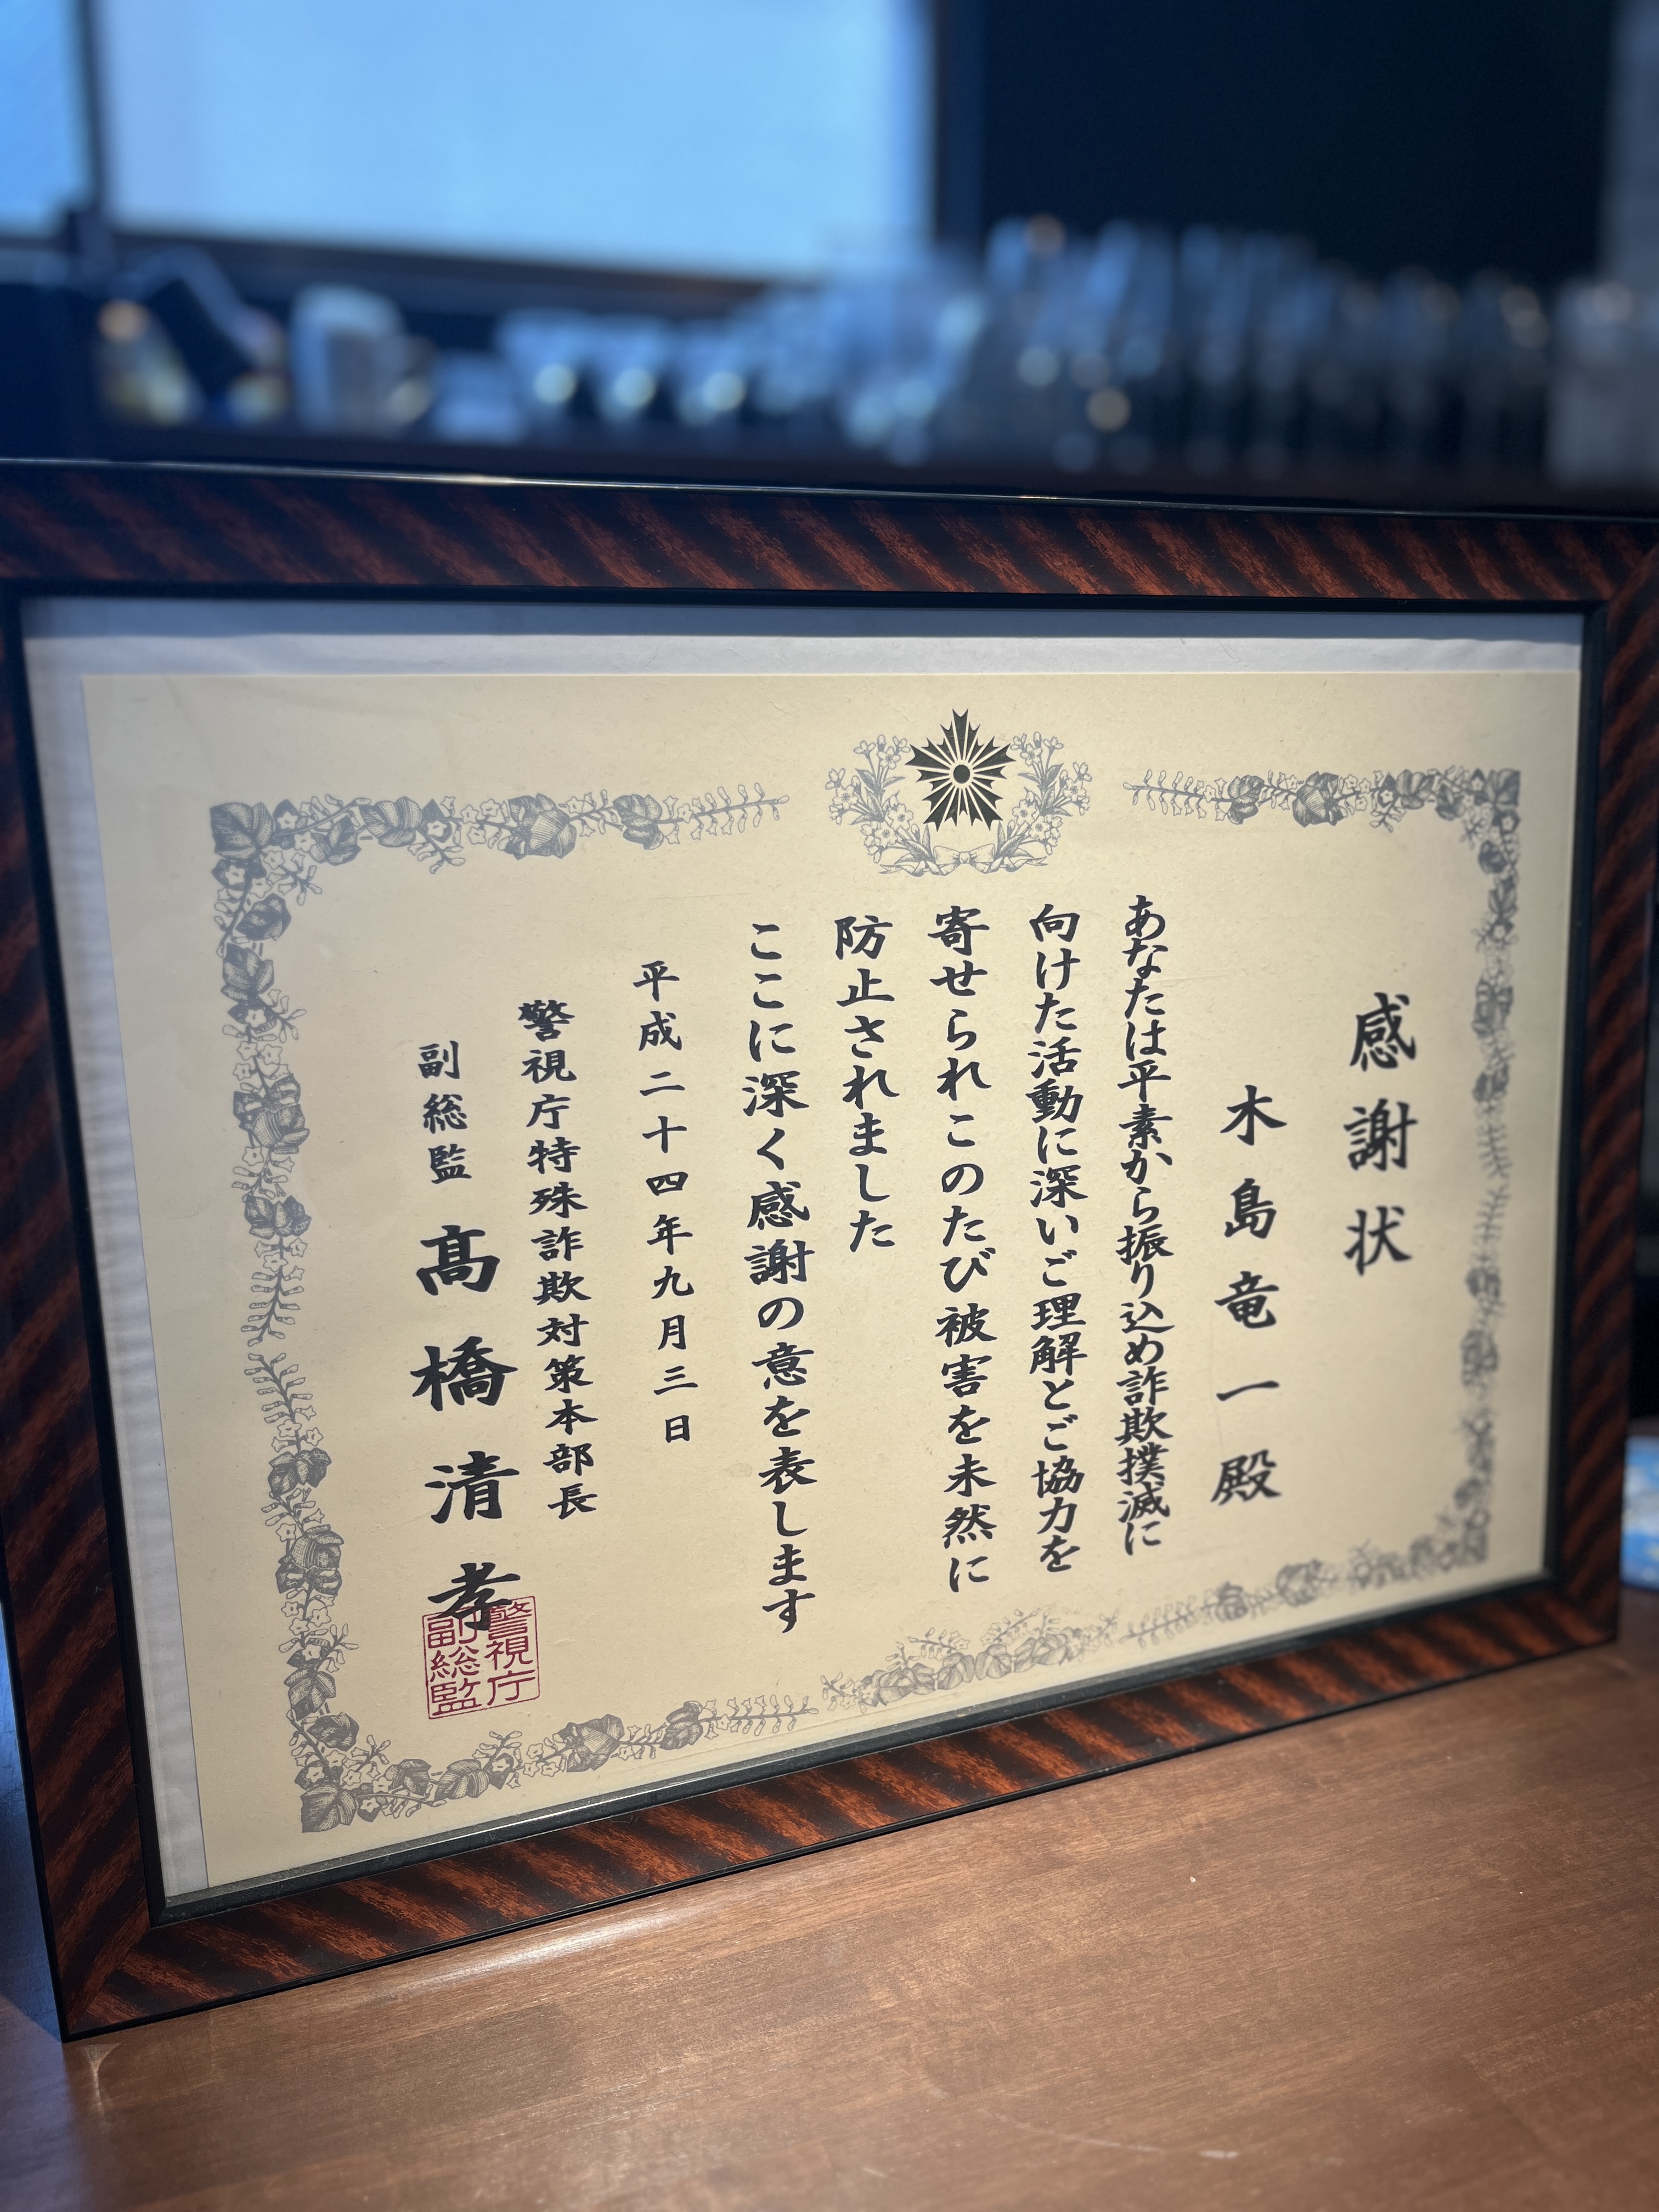 感謝状
木島竜一殿
あなたは平素から振り込め詐欺撲滅に
向けた活動に深いご理解とご協力を
寄せられこのたび被害を未然に
防止されました
ここに深く感謝の意を表します
平成二十四年九月三日
警視庁特殊詐欺対策本部長
副総監 髙橋清孝
警視庁
副総監